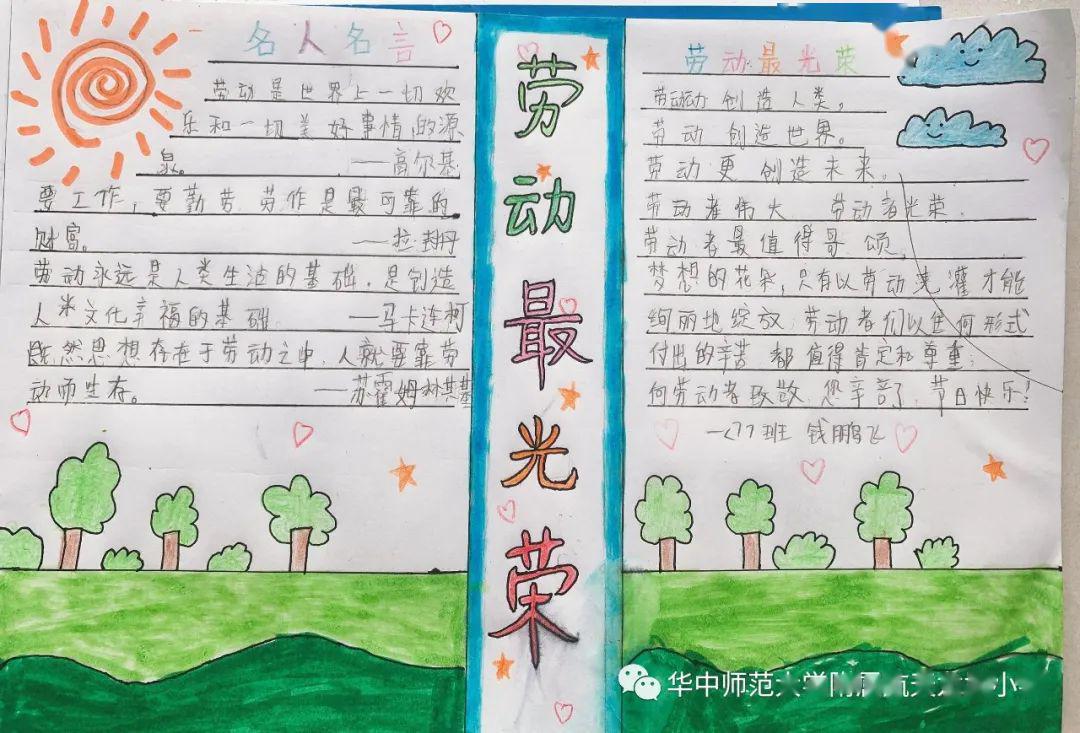 名人名言
劳动是世界上一切欢
乐和一切美好事情的源
泉。 ——高尔基
要工作，要勤劳 劳作是最可靠的
财富。 ——拉·封丹
劳动永远是人类生活的基础，是创造
人米文化辛福的基础 ——马卡连柯
既然思想存在于劳动之中，人就要靠劳
动师生存。 ——苏霍姆林其基
劳动最光荣
劳动最光荣
劳动 创造人类，
劳动 创造世界。
劳动更创造未来。
劳动者伟大 劳动者光荣.
劳动者最值得哥颂，
梦想的花朵，只有以劳动浇灌才能
绚丽地绽放，劳动者们以任何形式
付出的辛苦 都值得肯定和尊重；
向劳动者致敬，您辛苦了，节日快乐！
一(7)班 钱鹏飞
华中师范大学附属航天 小